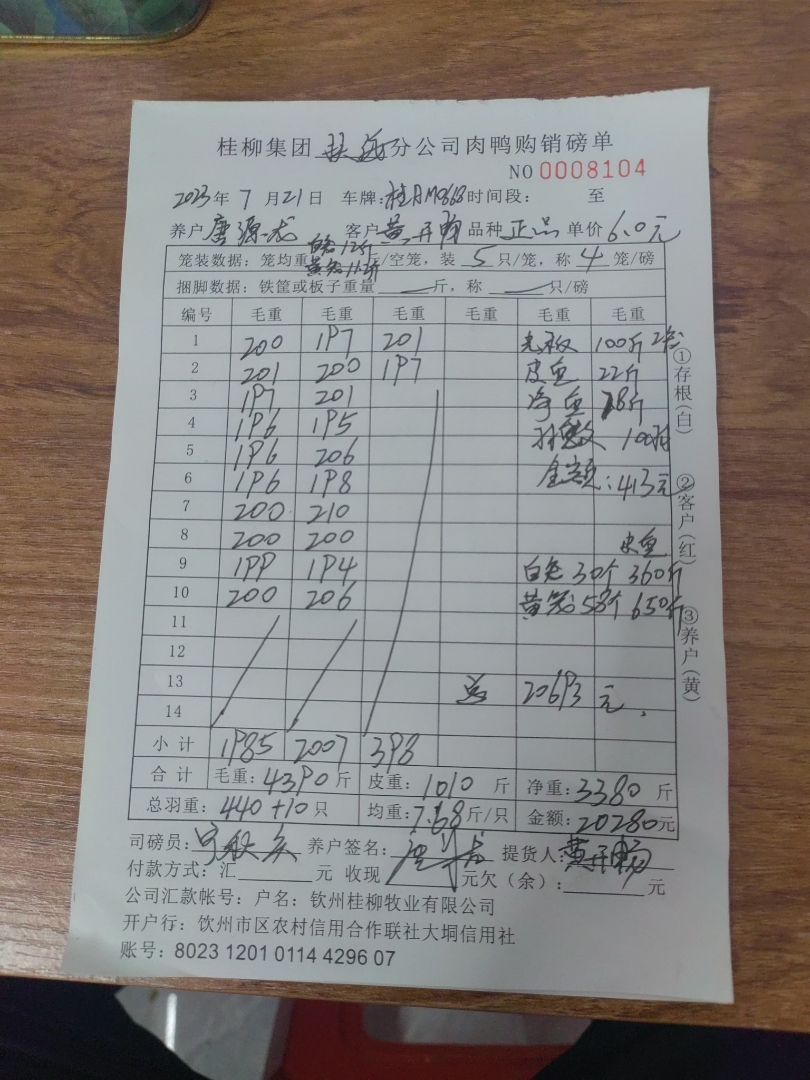 桂柳集团 分公司肉鸭购销磅单
NO 0008104
2023年 7月21日 车牌:桂AM0868 时间段: 至
养户 唐源 客户 黄 品种 正品 单价 6.0元
白毛12斤
笼装数据: 笼均重 斤/空笼, 装 5 只/笼, 称 4 笼/磅
捆脚数据: 铁筐或板子重量 斤, 称 只/磅
编号 毛重 毛重 毛重 毛重 毛重 毛重
1 200 197 201 100斤
2 201 200 197 皮重 22斤
3 197 201 净重 78斤
4 196 195 100
5 196 206 金额:413元
6 196 198
7 200 210
8 200 200 皮重
9 199 194 白色 30个 360斤
10 200 206 58个 650斤
11
12
13 总 20693元.
14
小计 1985 2007 398
合计 毛重:4390斤 皮重:1010斤 净重:3380斤
总羽重: 440+10只 均重:7.68斤/只 金额:20280元
司磅员: 养户签名: 提货人:
付款方式:汇 元 收现 元欠(余): 元
公司汇款帐号: 户名: 钦州桂柳牧业有限公司
开户行: 钦州市区农村信用合作联社大垌信用社
账号: 8023 1201 0114 4296 07
①存根(白) ②客户(红) ③养户(黄)